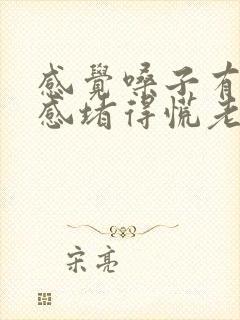 感覺嗓子有
感堵得慌老
宋亮